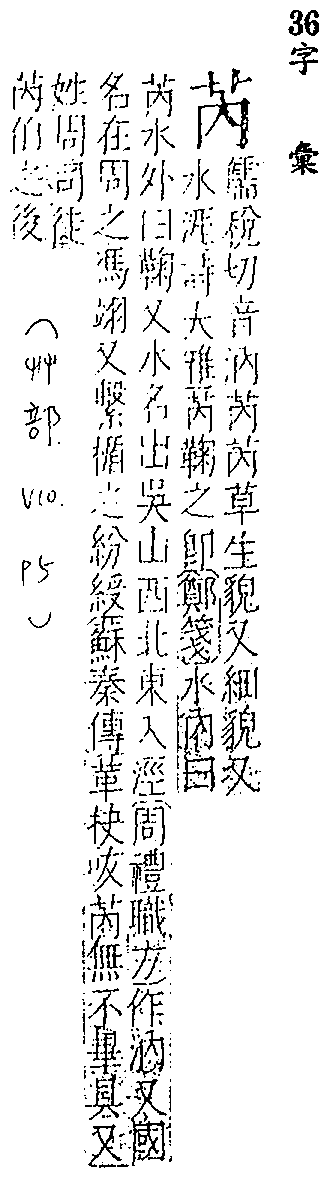 36
字彙
芮
儒稅切音汭芮芮草生貌又細貌又
水涯詩大雅芮鞫之即鄭箋水內曰
芮水外曰鞫又水名出吳山西北東入涇周禮職方作汭又國
名在周之馮翊又繫楯之紛綬蘇秦傳革抉㕹芮無不畢具又
姓周司徒
芮伯之後
(艸部 V10. P5)